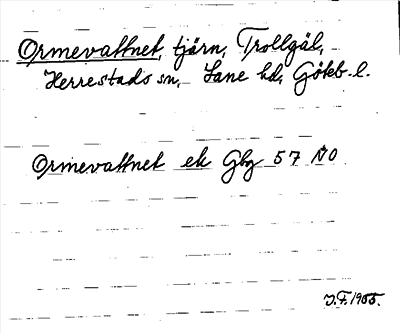 Ormevattnet, tjärn, Trollgäl,
Herrestads sn, Lane hd, Göteb. l.
Ormevattnet ek Gbg 57 NO
J.F. 1955.